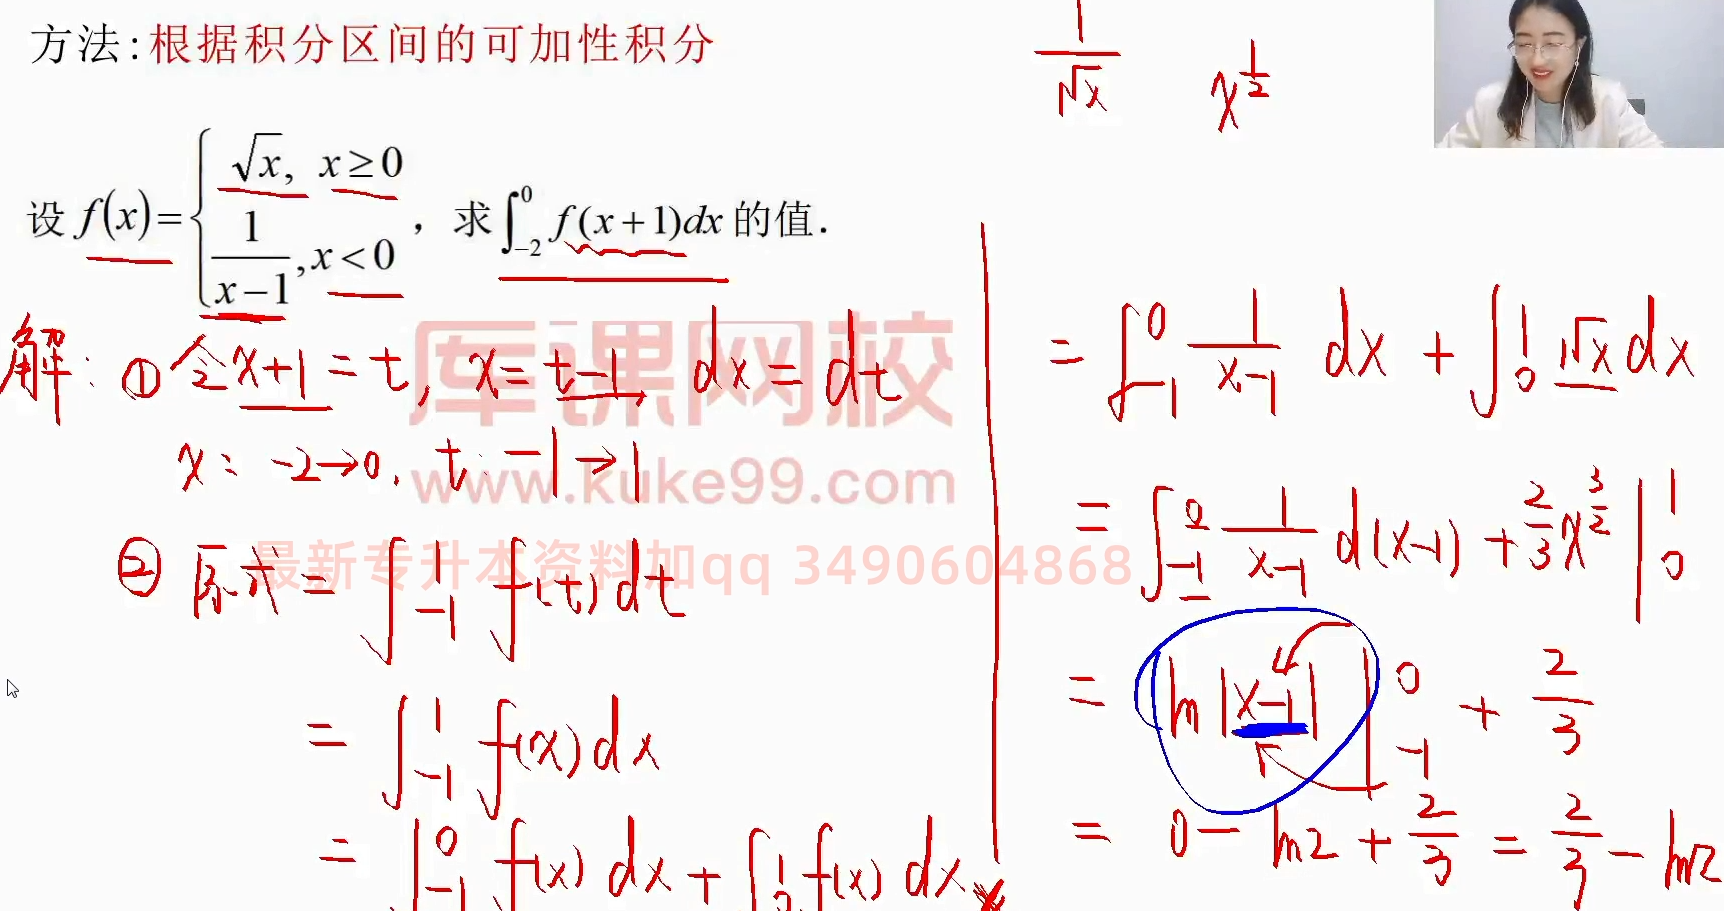 方法:根据积分区间的可加性积分
1/√x x^{1/2}
设 f(x)={√x, x≥0
1/(x−1), x<0 , 求∫_{-2}^{0} f(x+1)dx 的值.
解: ① 令x+1=t, x=t-1, dx=dt
x: -2→0. t: -1→1
② 原式=∫_{-1}^{1} f(t)dt
=∫_{-1}^{1} f(x)dx
=∫_{-1}^{0} f(x)dx+∫_{0}^{1} f(x)dx
=∫_{-1}^{0} 1/(x-1) dx+∫_{0}^{1} √x dx
=∫_{-1}^{0} 1/(x-1) d(x-1)+2/3 x^{3/2}|_{0}^{1}
=ln|x-1||_{-1}^{0}+2/3
=0-ln2+2/3=2/3-ln2
库课网校
www.kuke99.com
最新专升本资料加qq 3490604868